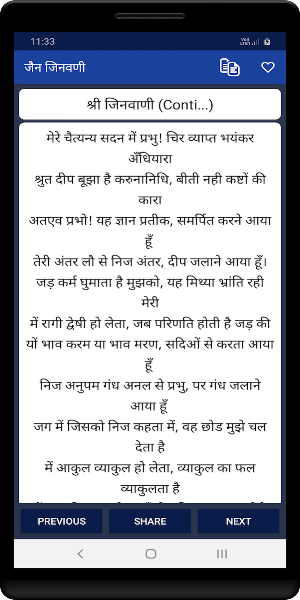 11:33
जैन जिनवणी
श्री जिनवाणी (Conti...)
मेरे चैत्यन्य सदन में प्रभु! चिर व्याप्त भयंकर
अँधियारा
श्रुत दीप बूझा है करुनानिधि, बीती नही कष्टों की
कारा
अतएव प्रभो! यह ज्ञान प्रतीक, समर्पित करने आया
हूँ
तेरी अंतर लौ से निज अंतर, दीप जलाने आया हूँ।
जड़ कर्म घुमाता है मुझको, यह मिथ्या भ्रांति रही
मेरी
में रागी द्वेषी हो लेता, जब परिणति होती है जड़ की
यों भाव करम या भाव मरण, सदिओं से करता आया
हूँ
निज अनुपम गंध अनल से प्रभु, पर गंध जलाने
आया हूँ
जग में जिसको निज कहता में, वह छोड मुझे चल
देता है
में आकुल व्याकुल हो लेता, व्याकुल का फल
व्याकुलता है
PREVIOUS
SHARE
NEXT